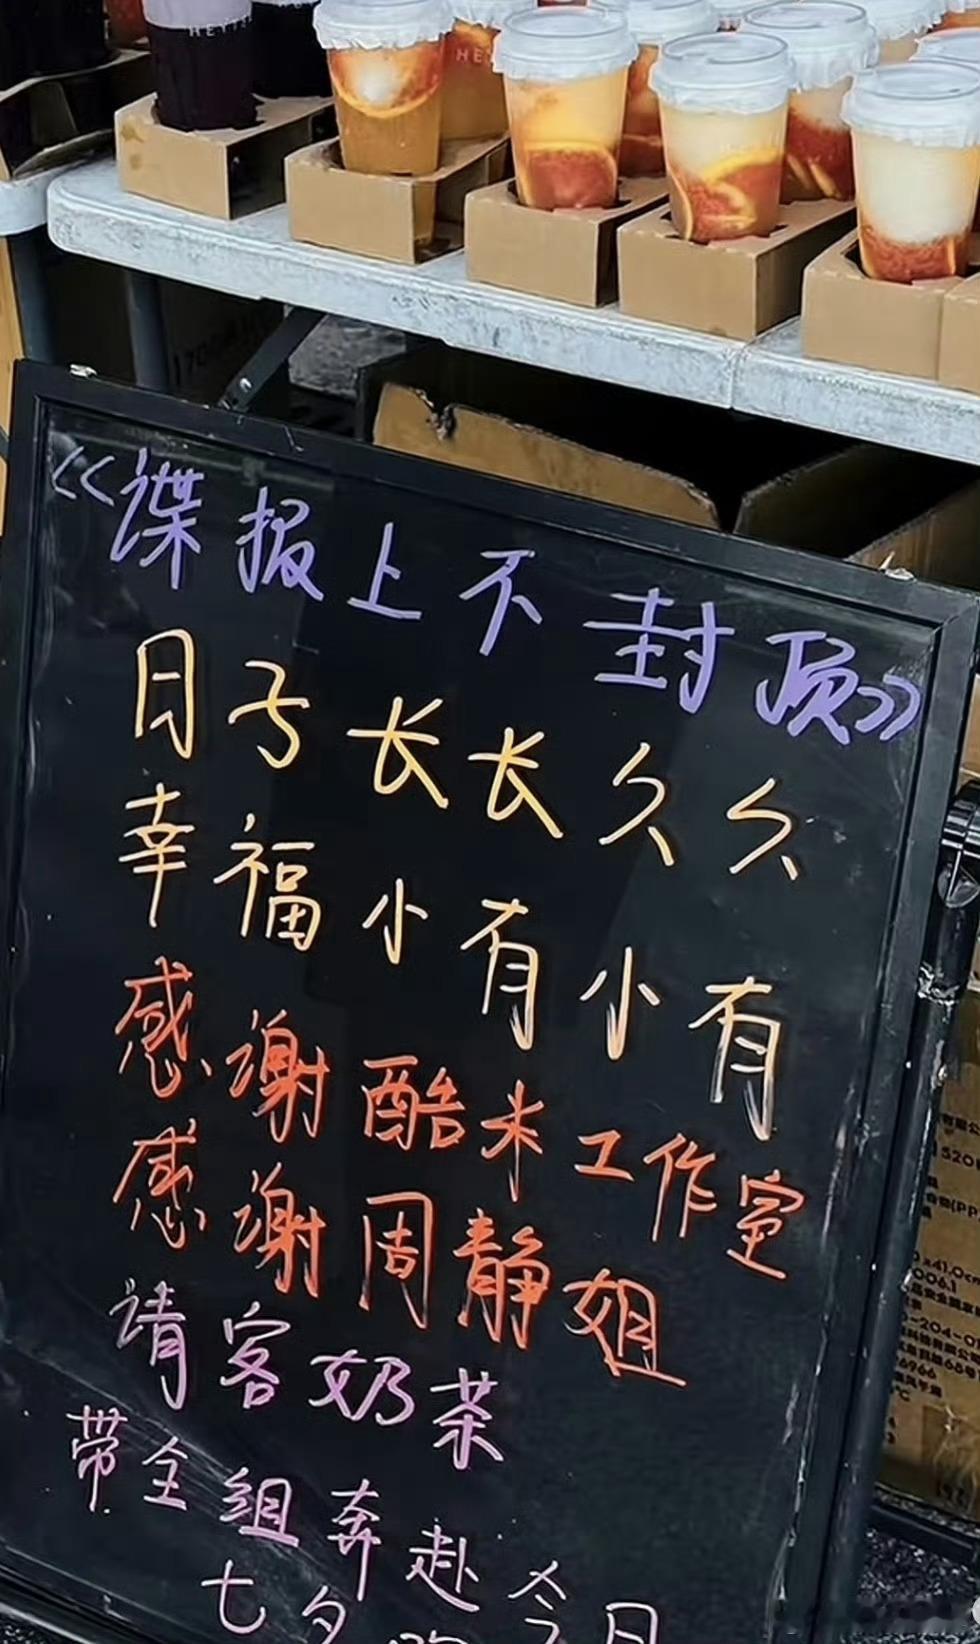 HEYT
HE
<<谍报上不封顶>>
月子长长久久
幸福小有小有
感谢酷米工作室
感谢周静姐
请客奶茶
带全组奔赴今日
七夕
520
41.0c
006.1
-204-0
6966